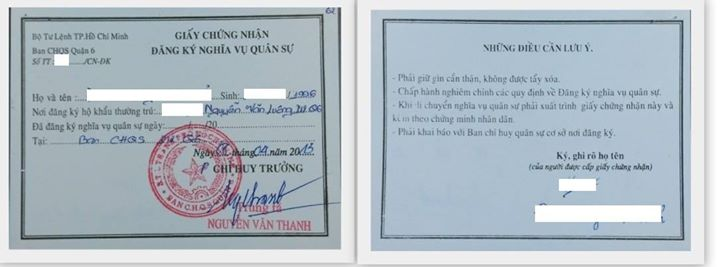 62
Bộ Tư Lệnh TP.Hồ Chí Minh
Ban CHQS Quận 6
Số TT /CN-ĐK
GIẤY CHỨNG NHẬN
ĐĂNG KÝ NGHĨA VỤ QUÂN SỰ
Họ và tên : Sinh: /1996
Nơi đăng ký hộ khẩu thường trú: Nguyễn Văn Luông
Đã đăng ký nghĩa vụ quân sự ngày: / /20
Tại: Ban CHQS
Ngày tháng 04 năm 2013
CHỈ HUY TRƯỞNG
BAN C.H.Q.S QUẬN 6
Trung tá
NGUYỄN VĂN THANH
NHỮNG ĐIỀU CẦN LƯU Ý.
- Phải giữ gìn cẩn thận, không được tẩy xóa.
- Chấp hành nghiêm chỉnh các quy định về Đăng ký nghĩa vụ quân sự.
- Khi di chuyển nghĩa vụ quân sự phải xuất trình giấy chứng nhận này và
kèm theo chứng minh nhân dân.
- Phải khai báo với Ban chỉ huy quân sự cơ sở nơi đăng ký.
Ký, ghi rõ họ tên
(của người được cấp giấy chứng nhận)